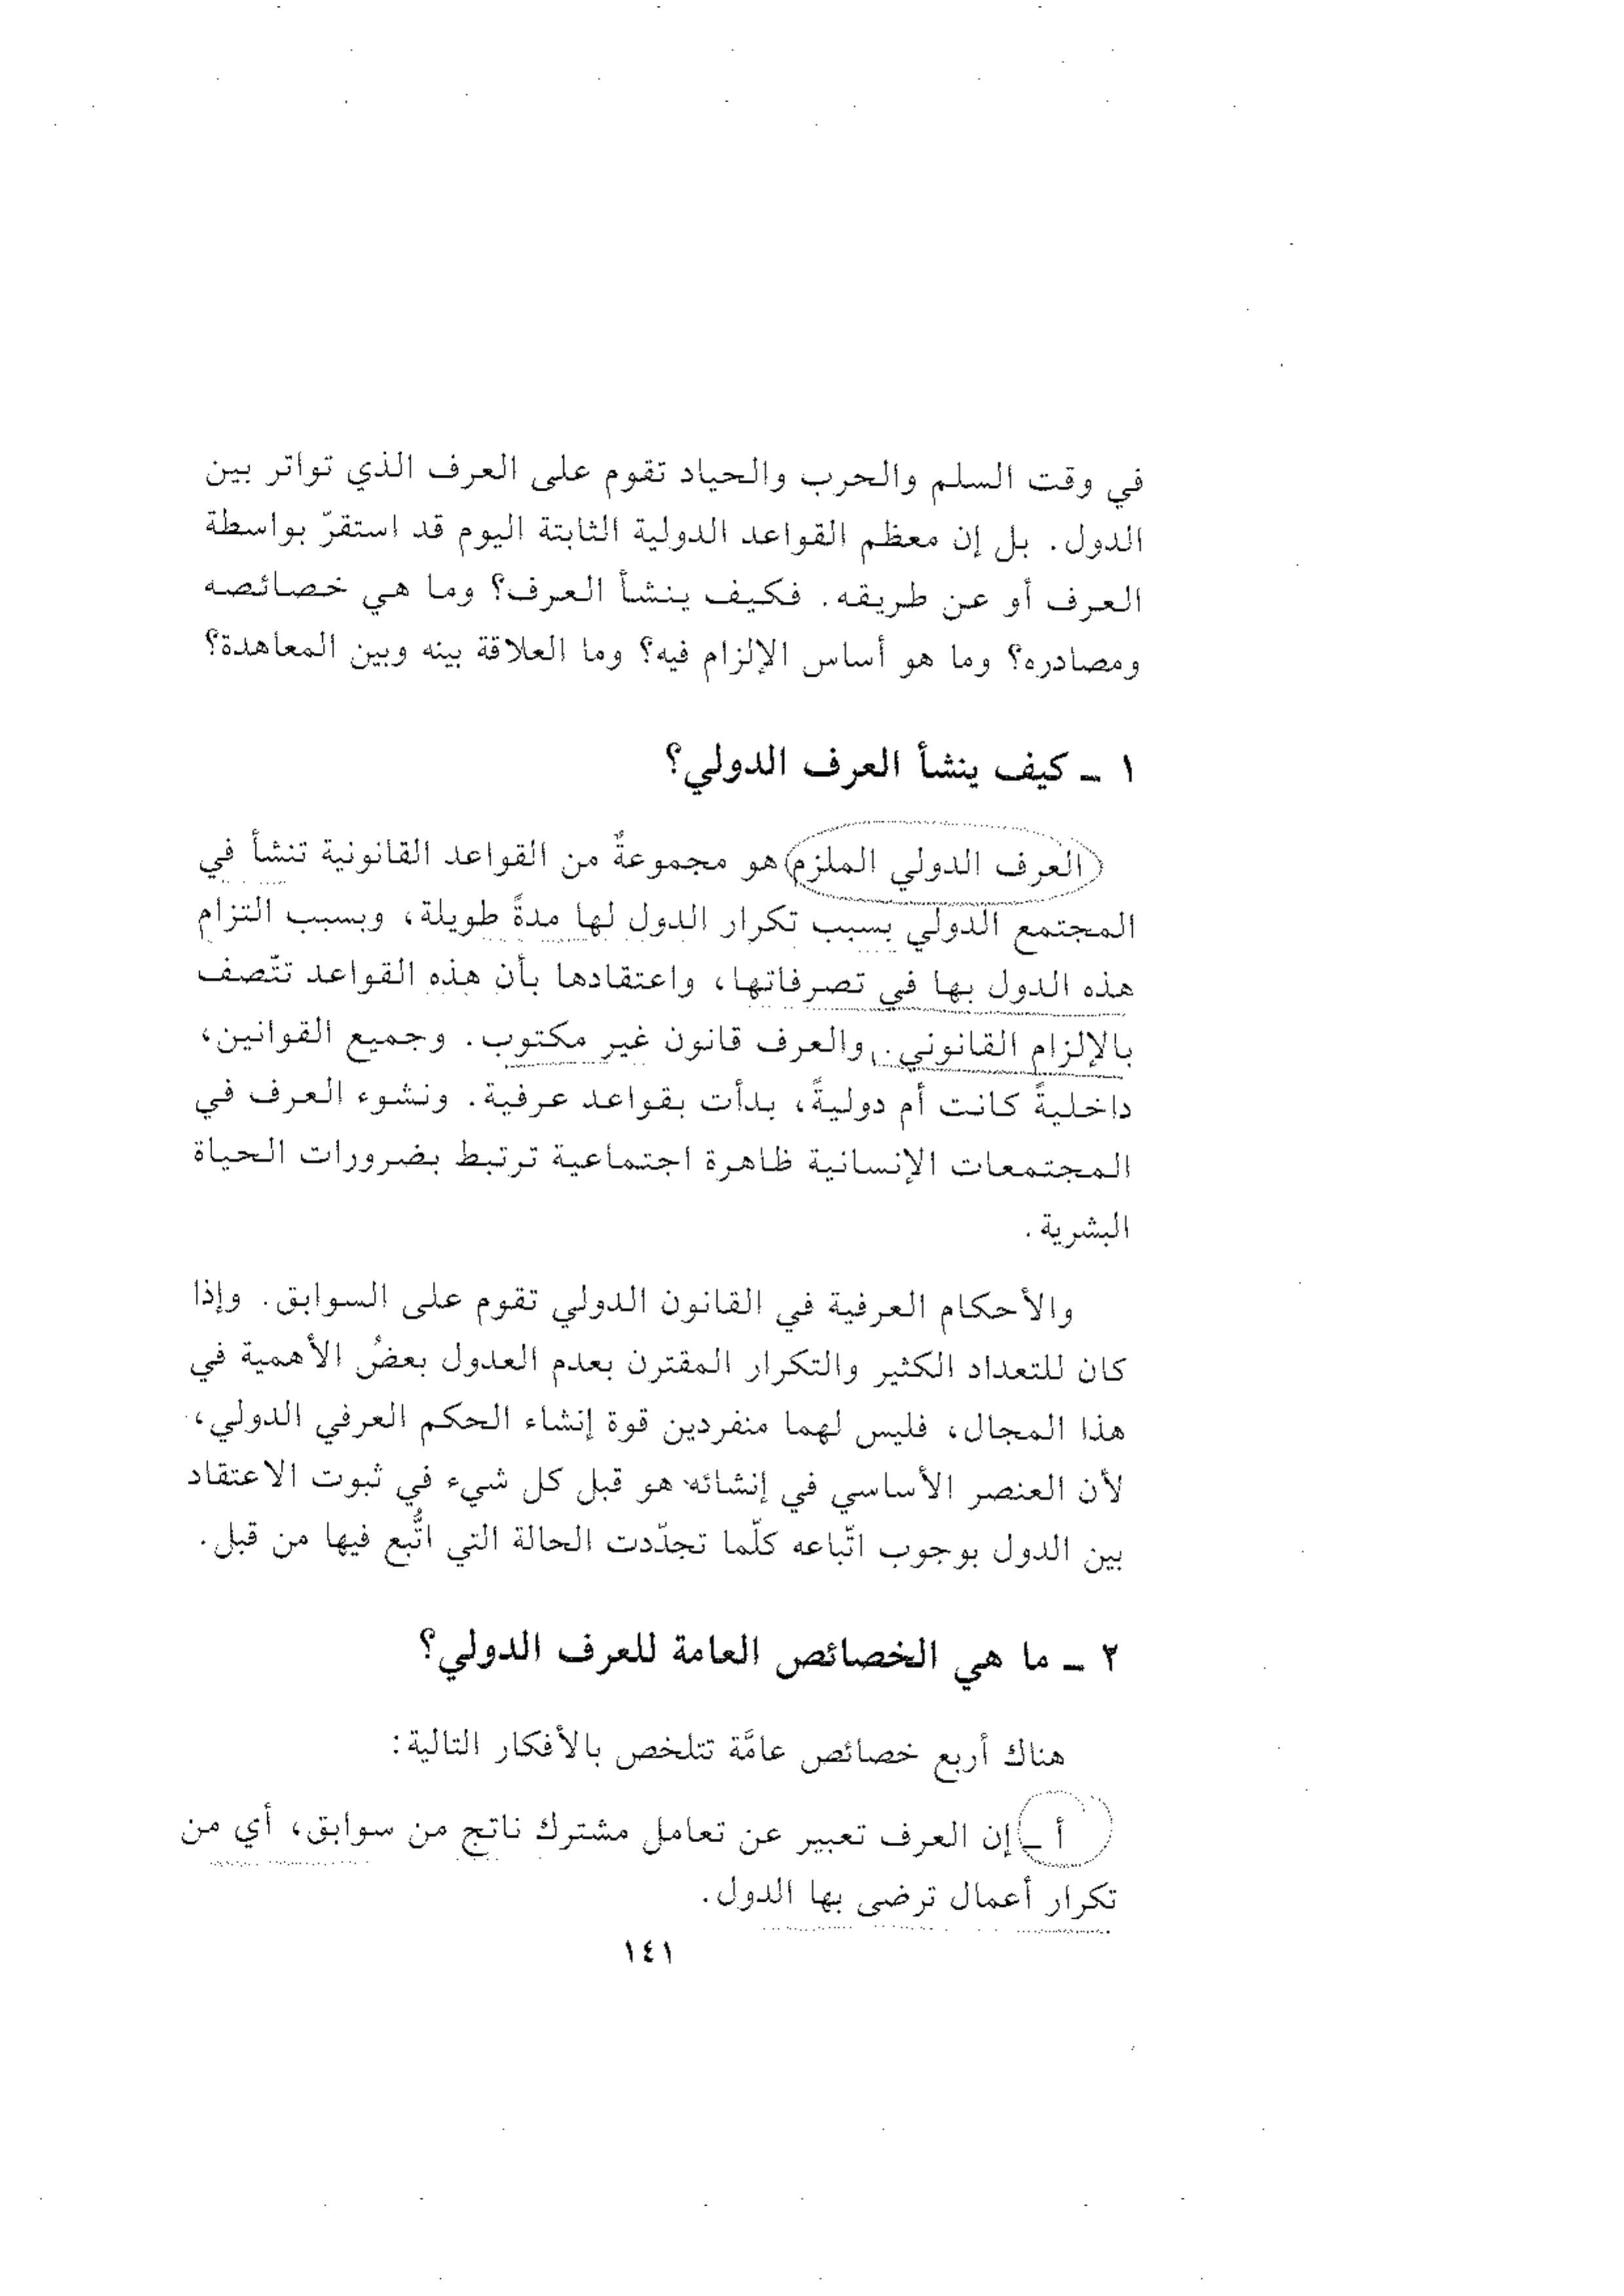 في وقت السلم والحرب والحياد تقوم على العرف الذي تواتر بين
الدول. بل إن معظم القواعد الدولية الثابتة اليوم قد استقرّ بواسطة
العرف أو عن طريقه. فكيف ينشأ العرف؟ وما هي خصائصه
ومصادره؟ وما هو أساس الإلزام فيه؟ وما العلاقة بينه وبين المعاهدة؟
١ ـ كيف ينشأ العرف الدولي؟
العرف الدولي الملزم هو مجموعةٌ من القواعد القانونية تنشأ في
المجتمع الدولي بسبب تكرار الدول لها مدةً طويلة، وبسبب التزام
هذه الدول بها في تصرفاتها، واعتقادها بأن هذه القواعد تتّصف
بالإلزام القانوني. والعرف قانون غير مكتوب. وجميع القوانين،
داخليةً كانت أم دوليةً، بدأت بقواعد عرفية. ونشوء العرف في
المجتمعات الإنسانية ظاهرة اجتماعية ترتبط بضرورات الحياة
البشرية.
والأحكام العرفية في القانون الدولي تقوم على السوابق. وإذا
كان للتعداد الكثير والتكرار المقترن بعدم العدول بعضُ الأهمية في
هذا المجال، فليس لهما منفردين قوة إنشاء الحكم العرفي الدولي،
لأن العنصر الأساسي في إنشائه هو قبل كل شيء في ثبوت الاعتقاد
بين الدول بوجوب اتّباعه كلّما تجدّدت الحالة التي اتُّبع فيها من قبل.
٢ ـ ما هي الخصائص العامة للعرف الدولي؟
هناك أربع خصائص عامَّة تتلخص بالأفكار التالية:
أ ـ إن العرف تعبير عن تعامل مشترك ناتج من سوابق، أي من
تكرار أعمال ترضى بها الدول.
١٤١